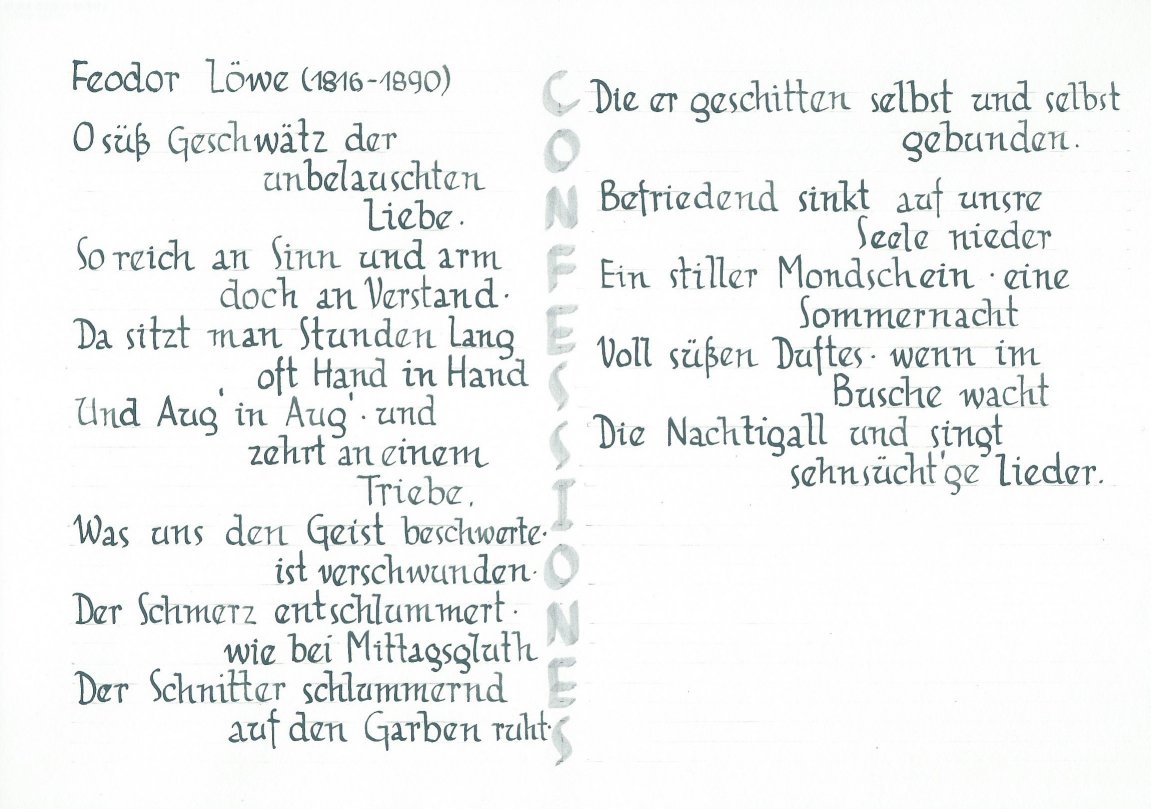 Feodor Löwe (1816-1890)
O süß Geschwätz der
unbelauschten
Liebe.
So reich an Sinn und arm
doch an Verstand.
Da sitzt man Stunden lang
oft Hand in Hand
Und Aug' in Aug'. und
zehrt an einem
Triebe.
Was uns den Geist beschwerte.
ist verschwunden.
Der Schmerz entschlummert.
wie bei Mittagsgluth
Der Schnitter schlummernd
auf den Garben ruht.
CONFESSIONES
Die er geschitten selbst und selbst
gebunden.
Befriedend sinkt auf unsre
Seele nieder
Ein stiller Mondschein. eine
Sommernacht
Voll süßen Duftes. wenn im
Busche wacht
Die Nachtigall und singt
sehnsücht'ge Lieder.